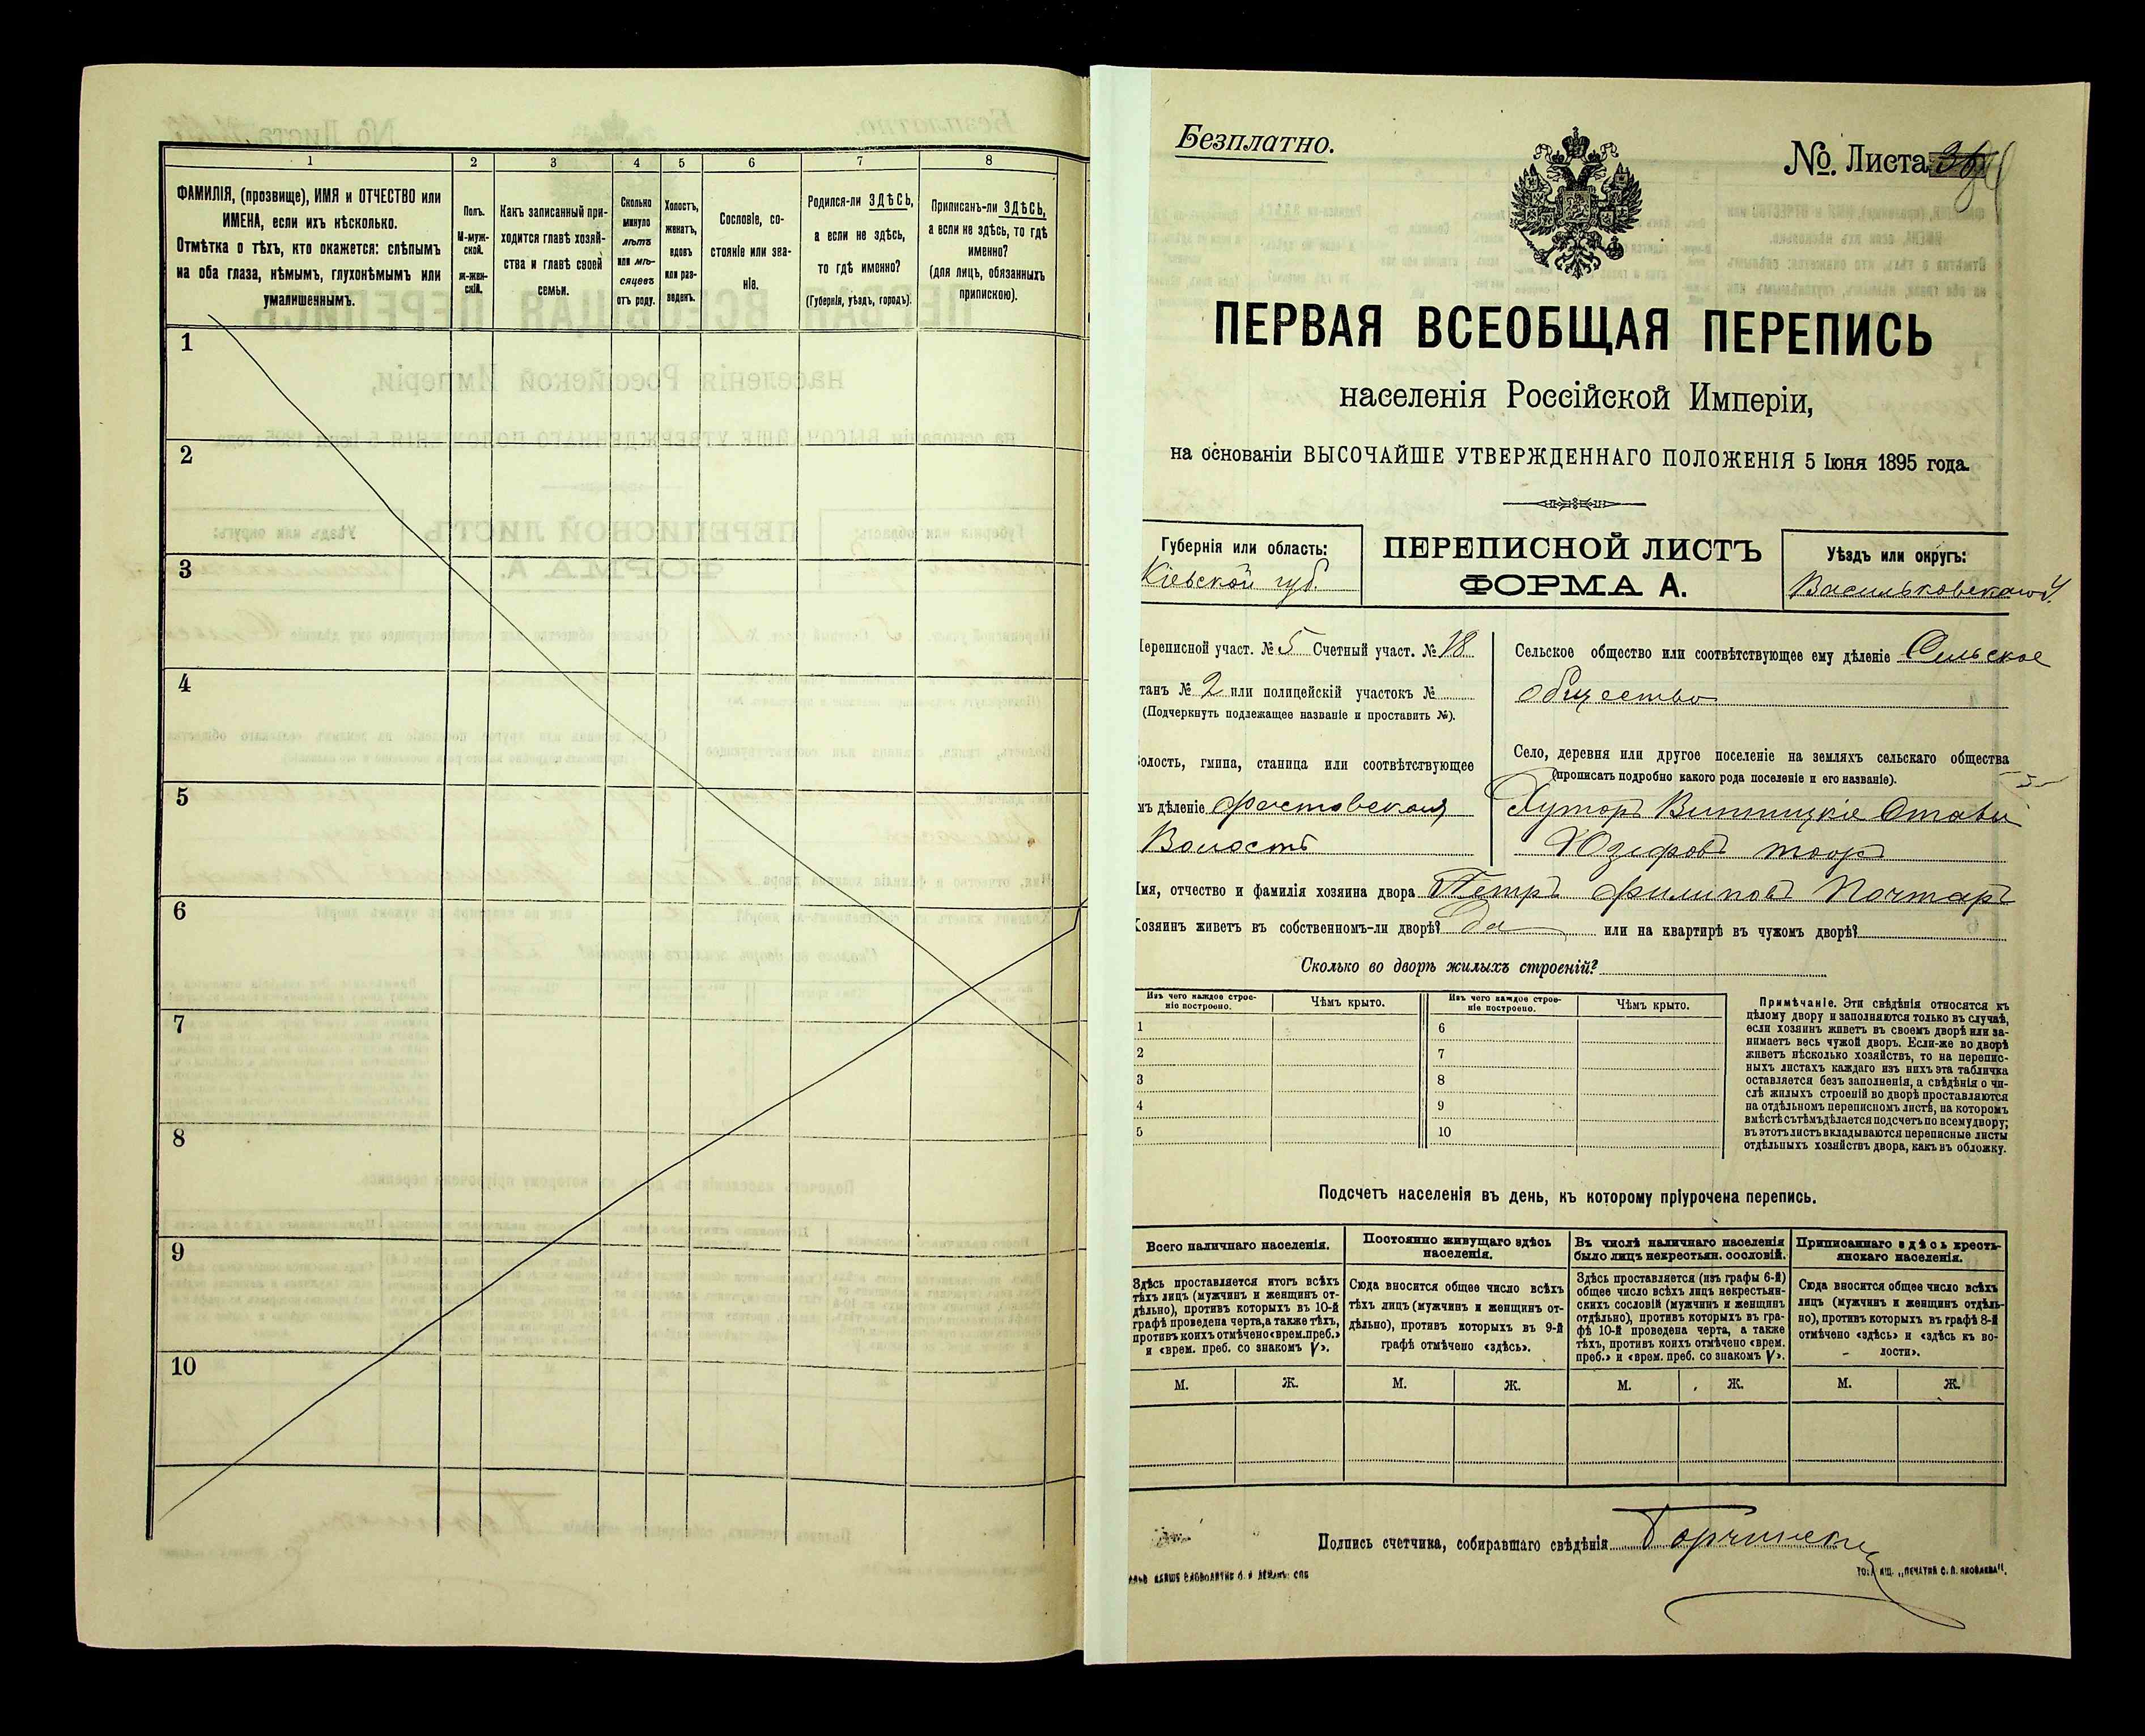 1
2
3
4
5
6
7
8
ФАМИЛІЯ, (прозвище), ИМЯ и ОТЧЕСТВО или
ИМЕНА, если ихъ нѣсколько.
Отмѣтка о тѣхъ, кто окажется: слѣпымъ
на оба глаза, нѣмымъ, глухонѣмымъ или
умалишеннымъ.
Полъ.
М-муж-
ской.
ж-жен-
скій.
Какъ записанный при-
ходится главѣ хозяй-
ства и главѣ своей
семьи.
Сколько
минуло
лѣтъ
или мѣ-
сяцевъ
отъ роду.
Холостъ,
женатъ,
вдовъ
или раз-
веденъ.
Сословіе, со-
стояніе или зва-
ніе.
Родился-ли ЗДѢСЬ,
а если не здѣсь,
то гдѣ именно?
(Губернія, уѣздъ, городъ).
Приписанъ-ли ЗДѢСЬ,
а если не здѣсь, то гдѣ
именно?
(для лицъ, обязанныхъ
припискою).
1
2
3
4
5
6
7
8
9
10
Безплатно.
№. Листа
ПЕРВАЯ ВСЕОБЩАЯ ПЕРЕПИСЬ
населенія Россійской Имперіи,
на основаніи ВЫСОЧАЙШЕ УТВЕРЖДЕННАГО ПОЛОЖЕНІЯ 5 Іюня 1895 года.
Губернія или область:
Кіевской губ.
ПЕРЕПИСНОЙ ЛИСТЪ
ФОРМА А.
Уѣздъ или округъ:
Васильковскаго у.
Переписной участ. № 5 Счетный участ. № 18
танъ № 2 или полицейскій участокъ №
(Подчеркнуть подлежащее названіе и проставить №).
олость, гмина, станица или соотвѣтствующее
мъ дѣленіе Фастовская
Волость
Сельское общество или соотвѣтствующее ему дѣленіе Сельское
общество
Село, деревня или другое поселеніе на земляхъ сельскаго общества
(прописать подробно какого рода поселеніе и его названіе).
Хуторъ Винницкіе Ставы
Имя, отчество и фамилія хозяина двора Петръ Филиповъ Почтаръ
Хозяинъ живетъ въ собственномъ-ли дворѣ? Да или на квартирѣ въ чужомъ дворѣ?
Сколько во дворѣ жилыхъ строеній?
Изъ чего каждое строе-
ніе построено.
Чѣмъ крыто.
Изъ чего каждое строе-
ніе построено.
Чѣмъ крыто.
1
2
3
4
5
6
7
8
9
10
Примѣчаніе. Эти свѣдѣнія относятся къ
цѣлому двору и заполняются только въ случаѣ,
если хозяинъ живетъ въ своемъ дворѣ или за-
нимаетъ весь чужой дворъ. Если-же во дворѣ
живетъ нѣсколько хозяйствъ, то на перепис-
ныхъ листахъ каждаго изъ нихъ эта табличка
оставляется безъ заполненія, а свѣдѣнія о чи-
слѣ жилыхъ строеній во дворѣ проставляются
на отдѣльномъ переписномъ листѣ, на которомъ
вмѣстѣ съ тѣмъ дѣлается подсчетъ по всему двору;
въ этотъ листъ вкладываются переписные листы
отдѣльныхъ хозяйствъ двора, какъ въ обложку.
Подсчетъ населенія въ день, къ которому пріурочена перепись.
Всего наличнаго населенія.
Здѣсь проставляется итогъ всѣхъ
тѣхъ лицъ (мужчинъ и женщинъ от-
дѣльно), противъ которыхъ въ 10-й
графѣ проведена черта, а также тѣхъ,
противъ коихъ отмѣчено «врем. преб.»
и «врем. преб. со знакомъ V».
Постоянно живущаго здѣсь
населенія.
Сюда вносится общее число всѣхъ
тѣхъ лицъ (мужчинъ и женщинъ от-
дѣльно), противъ которыхъ въ 9-й
графѣ отмѣчено «здѣсь».
Въ числѣ наличнаго населенія
было лицъ некрестьян. сословій.
Здѣсь проставляется (изъ графы 6-й)
общее число всѣхъ лицъ некрестьян-
скихъ сословій (мужчинъ и женщинъ
отдѣльно), противъ которыхъ въ гра-
фѣ 10-й проведена черта, а также
тѣхъ, противъ коихъ отмѣчено «врем.
преб.» и «врем. преб. со знакомъ V».
Приписаннаго здѣсь кресть-
янскаго населенія.
Сюда вносится общее число всѣхъ
лицъ (мужчинъ и женщинъ отдѣль-
но), противъ которыхъ въ графѣ 8-й
отмѣчено «здѣсь» и «здѣсь къ во-
лости».
М. Ж. М. Ж. М. Ж. М. Ж.
Подпись счетчика, собиравшаго свѣдѣнія